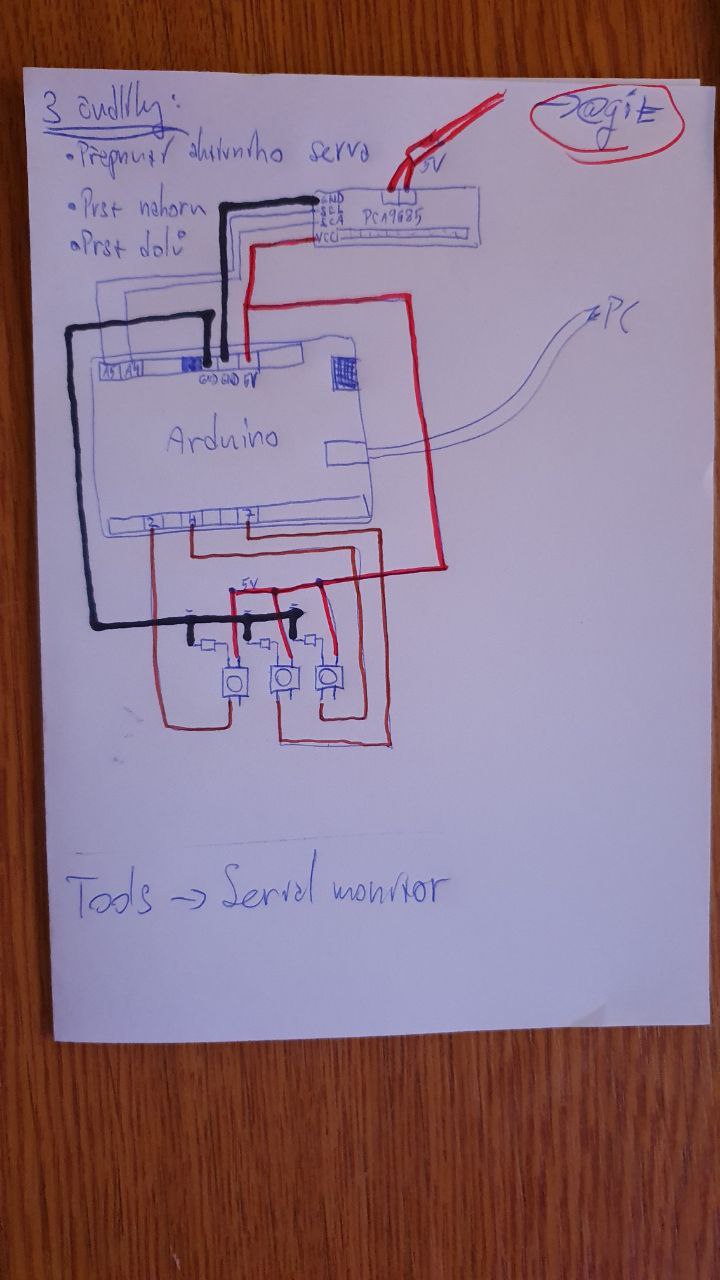 3 čudlíky:
• Přepínač aktivního serva
• Prst nahoru
• Prst dolů
→ @git
5V
GND
SCL
SCA
VCC
PCA9685
PC
A5 A4
GND GND 5V
Arduino
2 4 7
5V
Tools → Serial monitor